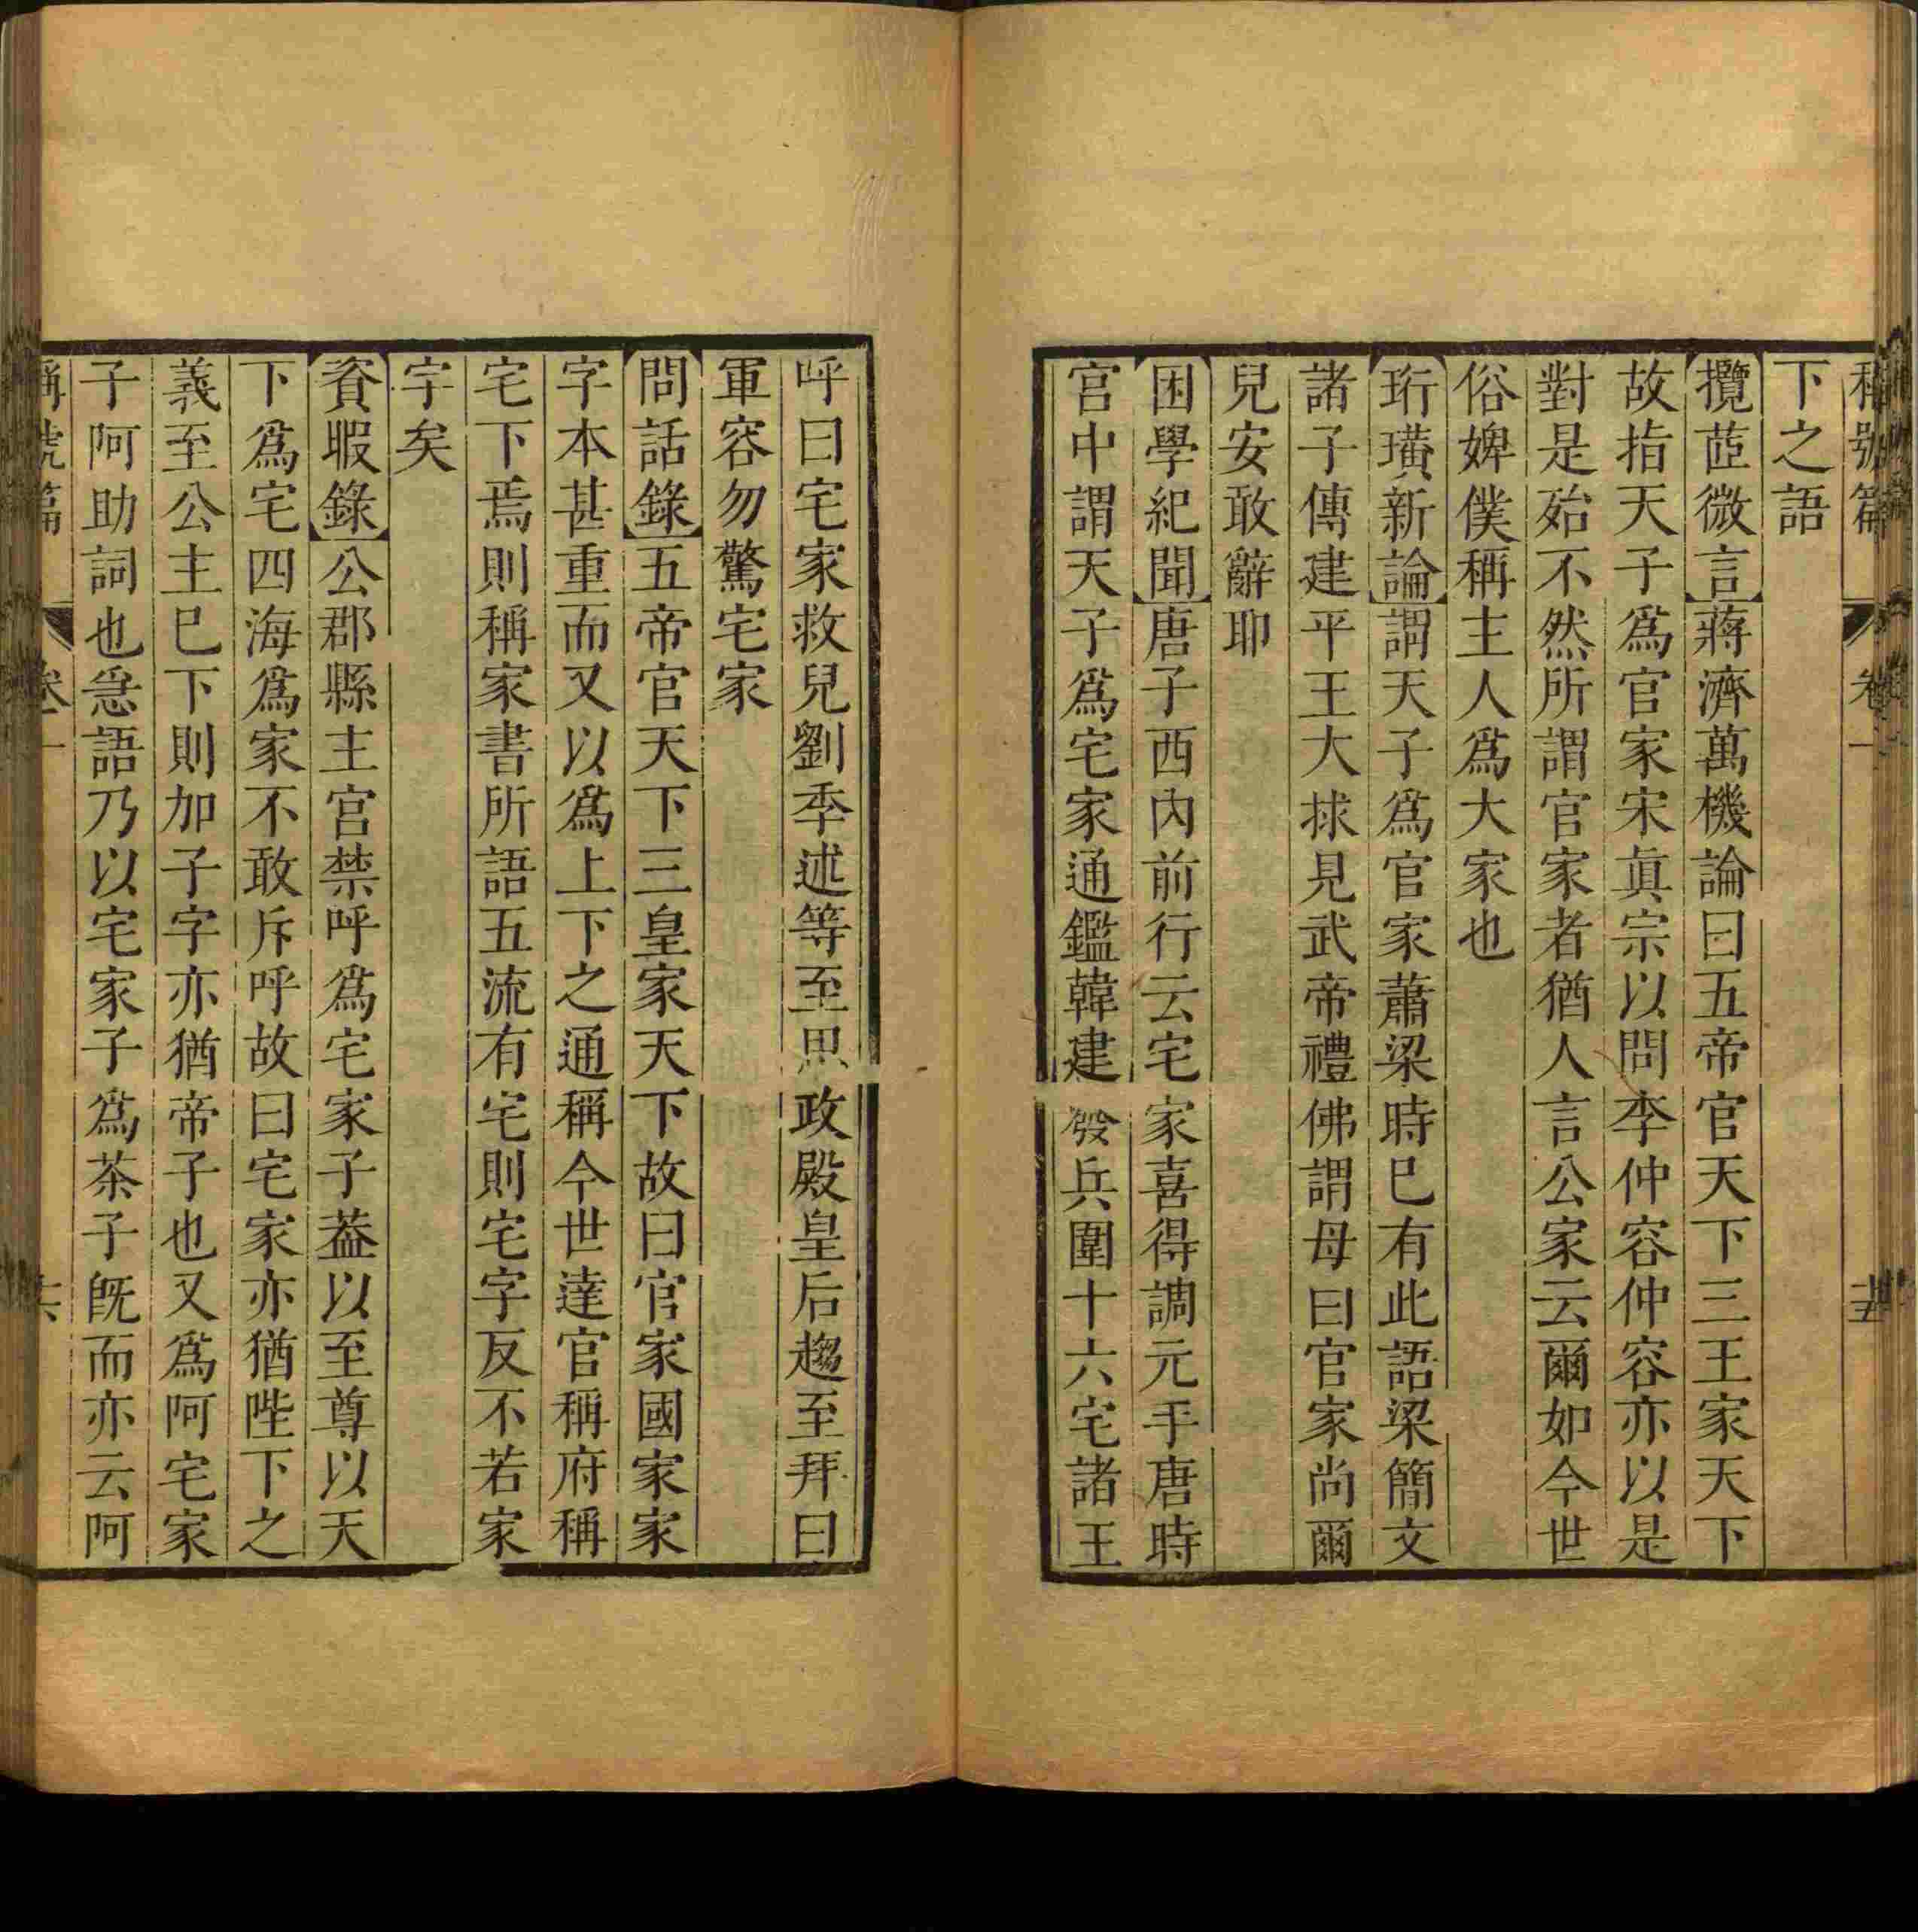 稱號篇 卷一 十五
下之語
攬茝微言蔣濟萬機論曰五帝官天下三王家天下
故指天子爲官家宋眞宗以問李仲容仲容亦以是
對是殆不然所謂官家者猶人言公家云爾如今世
俗婢僕稱主人爲大家也
珩璜新論謂天子爲官家蕭梁時巳有此語梁簡文
諸子傳建平王大捄見武帝禮佛謂母曰官家尚爾
兒安敢辭耶
困學紀聞唐子西內前行云宅家喜得調元手唐時
宫中謂天子爲宅家通鑑韓建發兵圍十六宅諸王
呼曰宅家救兒劉季述等至思政殿皇后趨至拜曰
軍容勿驚宅家
問話錄五帝官天下三皇家天下故曰官家國家家
字本甚重而又以爲上下之通稱今世達官稱府稱
宅下焉則稱家書所語五流有宅則宅字反不若家
字矣
資暇錄公郡縣主宫禁呼爲宅家子葢以至尊以天
下爲宅四海爲家不敢斥呼故曰宅家亦猶陛下之
義至公主巳下則加子字亦猶帝子也又爲阿宅家
子阿助詞也急語乃以宅家子爲茶子旣而亦云阿
稱號篇 卷一 十六